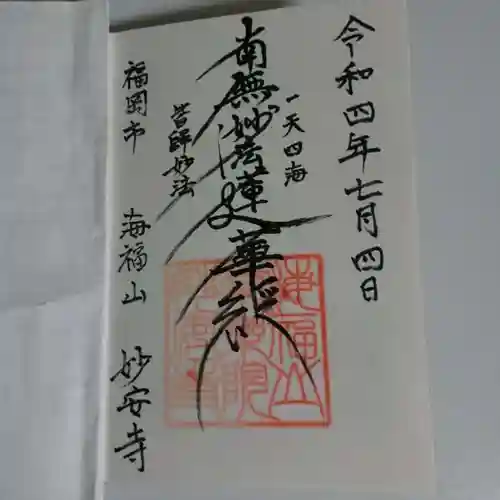 令和四年七月四日
一天四海
南無妙法蓮華経
皆歸妙法
福岡市 海福山 妙安寺